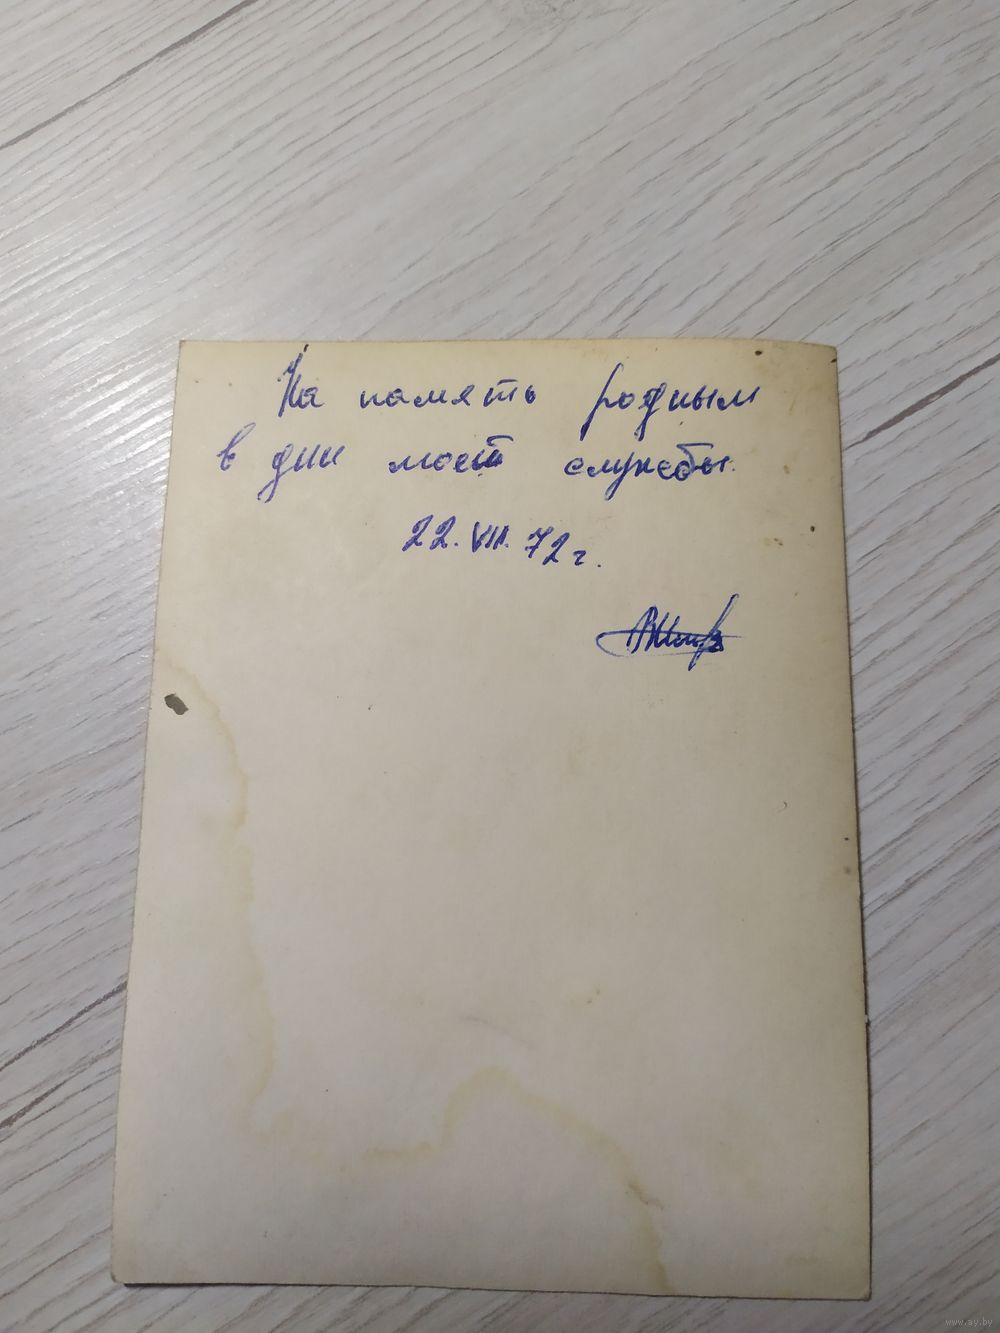 На память родным
в дни моей службы.
22. VIII. 72 г.
www.ay.by